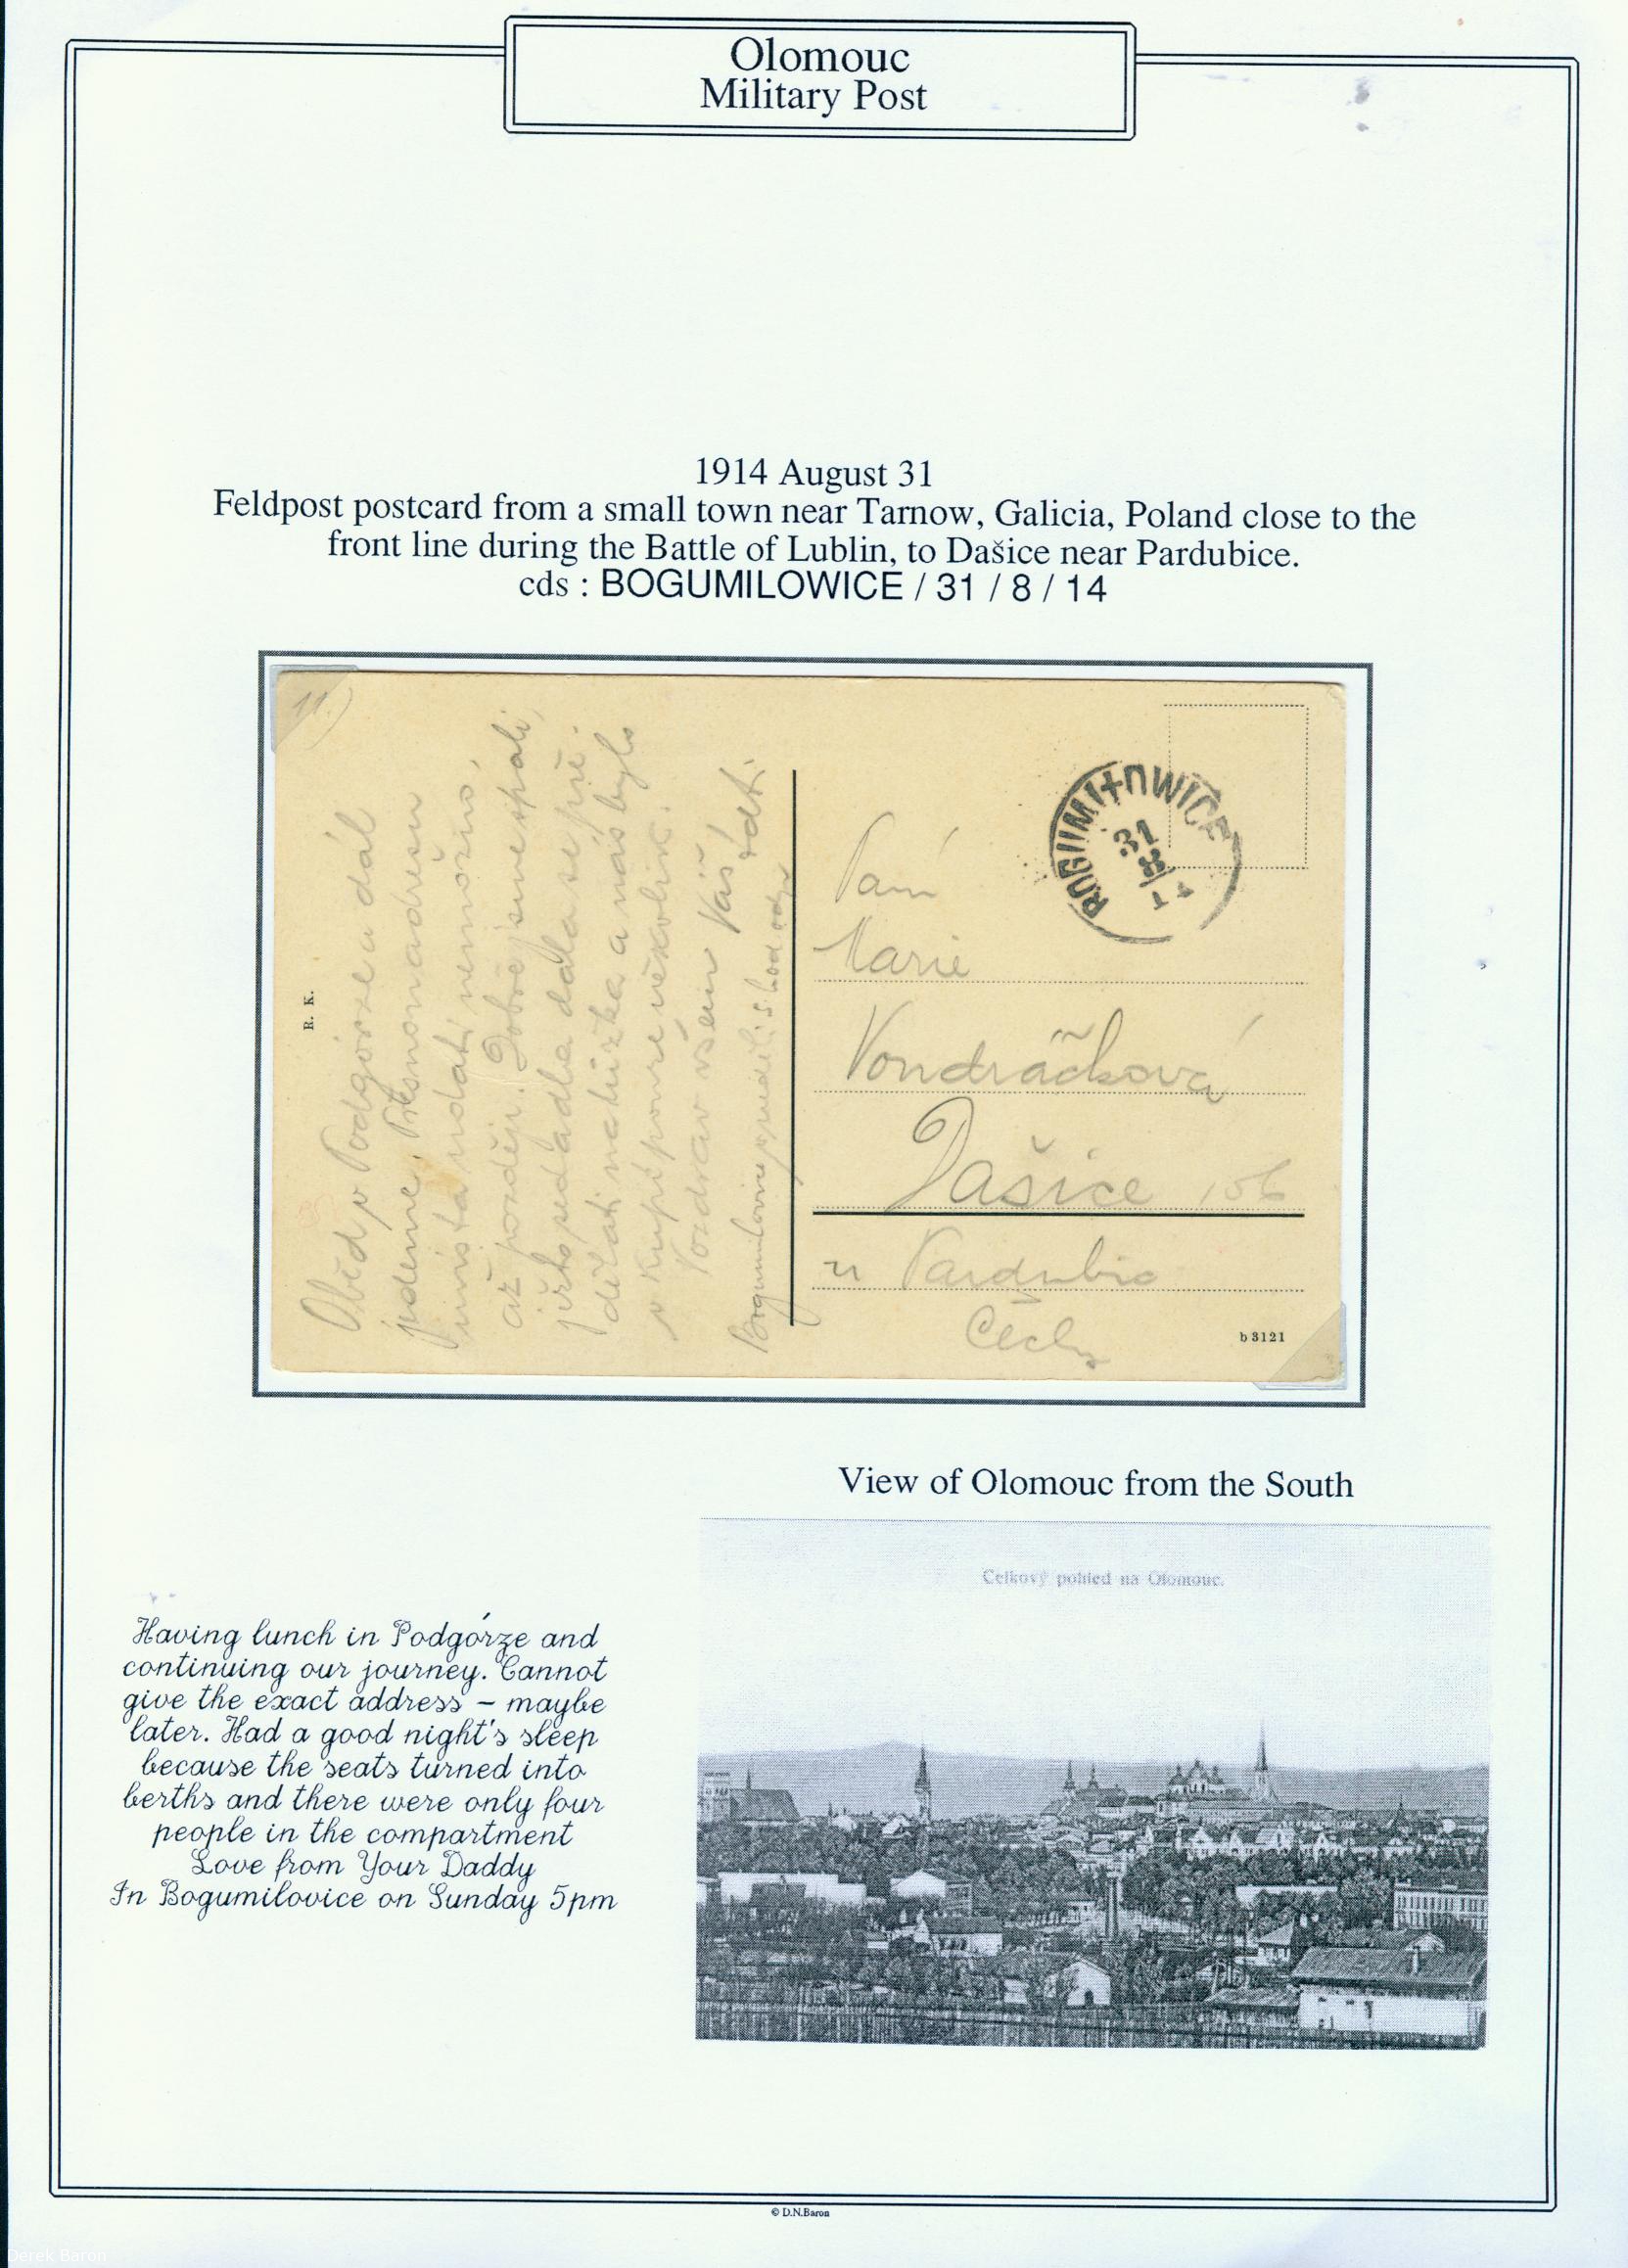 Olomouc
Military Post
1914 August 31
Feldpost postcard from a small town near Tarnow, Galicia, Poland close to the
front line during the Battle of Lublin, to Dašice near Pardubice.
cds : BOGUMILOWICE / 31 / 8 / 14
11.)
R. K.
Oběd v Podgórze a dál
jedeme. Přesnou adresu
místa udati nemožno,
až později. Dobře jsme spali,
sedadla dala se
dělati na lůžka a nás bylo
v kupé pouze
Pozdrav všem Váš
Bogumilovice
BOGUMIŁOWICE
31
8
14
Paní
Marie
Vondráčková
Dašice 156
u Pardubic
Čechy
b 3121
View of Olomouc from the South
Celkový pohled na Olomouc.
Having lunch in Podgórze and
continuing our journey. Cannot
give the exact address – maybe
later. Had a good night's sleep
because the seats turned into
berths and there were only four
people in the compartment
Love from Your Daddy
In Bogumilovice on Sunday 5pm
© D.N.Baron
Derek Baron